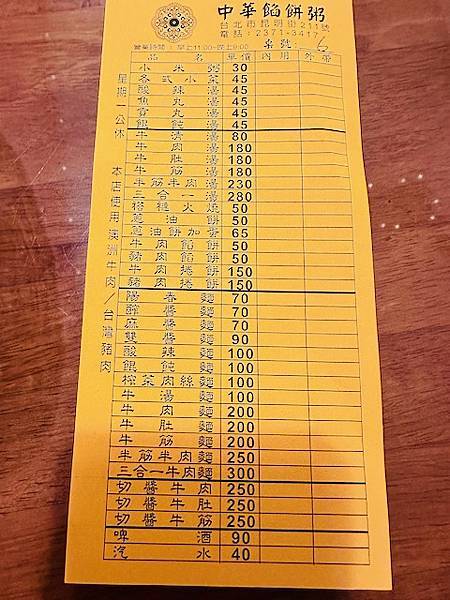 中華餡餅粥
台北市昆明街211號
電話:2371-3417
營業時間:早上11:00~晚上9:00
桌號: 6
品名 單價 內用 外帶
小米粥 30
各式小菜 45
酸辣湯 45
魚丸湯 45
貢丸湯 45
餛飩湯 45
牛清湯 80
牛肉湯 180
牛肚湯 180
牛筋湯 180
半筋半肉湯 230
三合一湯 280
褡褳火燒 50
蔥油餅 50
蔥油餅加蛋 65
牛肉餡餅 50
豬肉餡餅 50
牛肉捲餅 150
豬肉捲餅 150
陽春麵 70
醡醬麵 70
麻醬麵 70
雙醬麵 90
酸辣麵 100
餛飩麵 100
榨菜肉絲麵 100
牛湯麵 100
牛肉麵 200
牛肚麵 200
牛筋麵 200
半筋半肉麵 250
三合一牛肉麵 300
切醬牛肉 250
切醬牛肚 250
切醬牛筋 250
啤酒 90
汽水 40
星期一公休
本店使用澳洲牛肉/台灣豬肉